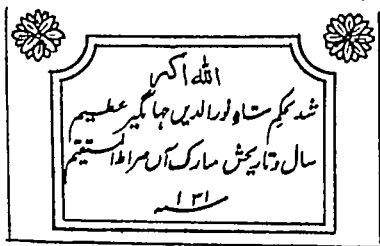 الله اکبر
شد بحکم شاہ نورالدیں جہانگیر عظیم
سال و تاریخش مبارک آں صراط المستقیم
۱۳۱ سنه